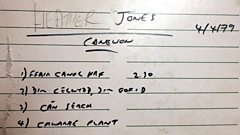 HEATHER JONES
CANEUON 4/4/79
1) FFAIR CANOL HAF 2.30
2) DIM CELWYDD, DIM GOFID
3) CÂN SERCH
4) CHWARAE PLANT